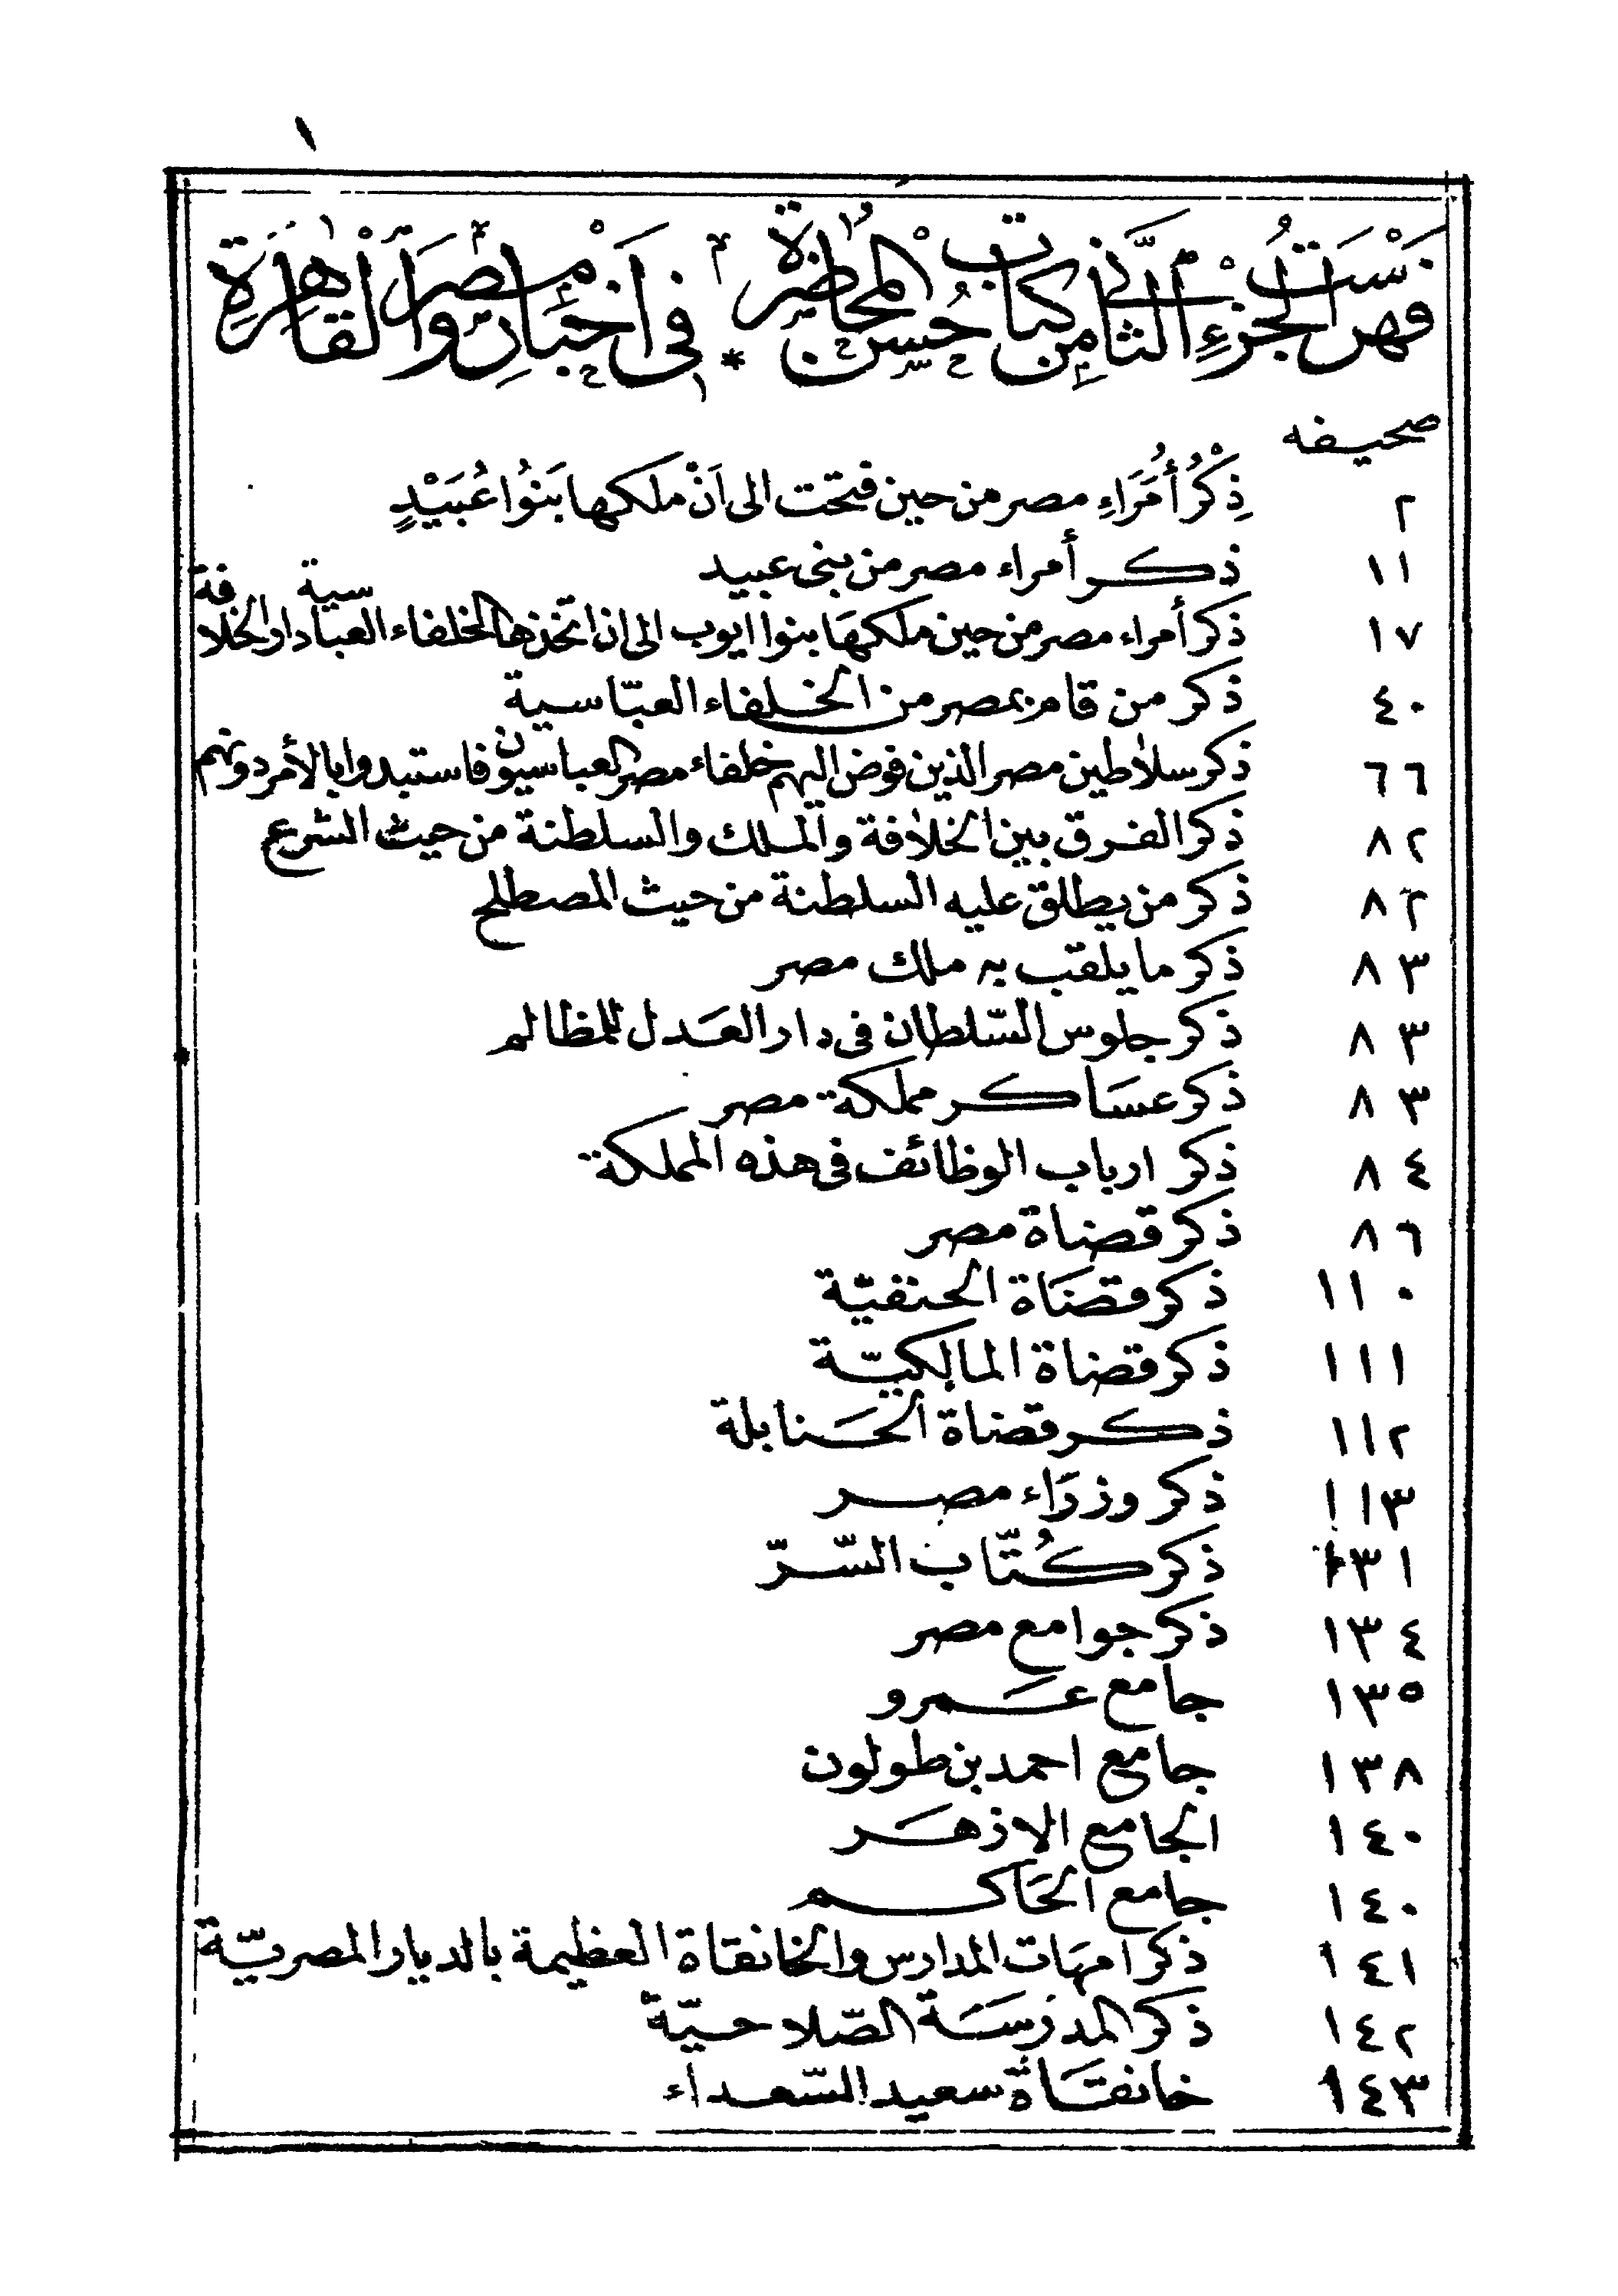 ١
فهرست الجزء الثاني من كتاب حسن المحاضرة * في اخبار مصر والقاهرة
صحيفه
٢ ذِكْرُ أُمَرَاءِ مصر من حين فتحت الى اَنْ ملكها بَنُوا عُبَيْدٍ
١١ ذكر أمراء مصر من بنى عبيد
١٧ ذكر أمراء مصر من حين ملكها بنوا ايوب الى ان اتخذها الخلفاء العباسية دار الخلافة
٤٠ ذكر من قام بمصر من الخلفاء العبّاسية
٦٦ ذكر سلاطين مصر الذين فوض اليهم خلفاء مصر العباسيون فاستبدوا بالأمر دونهم
٨٢ ذكر الفرق بين الخلافة والملك والسلطنة من حيث الشرع
٨٢ ذكر من يطلق عليه السلطنة من حيث المصطلح
٨٣ ذكر ما يلقب به ملك مصر
٨٣ ذكر جلوس السّلطان فى دار العَدل للمظالم
٨٣ ذكر عسَاكر مملكة مصر
٨٤ ذكر ارباب الوظائف فى هذه المملكة
٨٦ ذكر قضاة مصر
١١٠ ذكر قضَاة الحنفيّة
١١١ ذكر قضاة المالكيّة
١١٢ ذكر قضاة الحَنابلة
١١٣ ذكر وزرَاء مصر
١٣١ ذكر كُتّاب السّرّ
١٣٤ ذكر جوامع مصر
١٣٥ جامع عَمرو
١٣٨ جامع احمد بن طولون
١٤٠ الجامع الازهَر
١٤٠ جامع الحَاكم
١٤١ ذكر امهَات المدارس والخانقاة العظيمة بالديار المصريّة
١٤٢ ذكر المدرسَة الصّلاحيّة
١٤٣ خانقَاة سعيد السّعداء